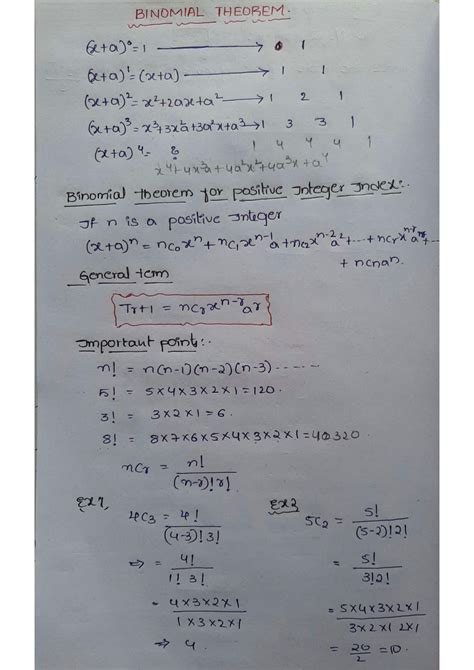 BINOMIAL THEOREM.
(x+a)⁰ = 1 ⟶ 1
(x+a)¹ = (x+a) ⟶ 1 1
(x+a)² = x²+2ax+a² ⟶ 1 2 1
(x+a)³ = x³+3x²a+3a²x+a³ ⟶ 1 3 3 1
(x+a)⁴ = 1 4 4 4 1
x⁴+4x³a+4a²x²+4a³x+a⁴
Binomial theorem for positive Integer Index:-
If n is a positive Integer
(x+a)ⁿ = nc₀xⁿ + nc₁xⁿ⁻¹a + nc₂xⁿ⁻²a² + ··· + ncᵣxⁿ⁻ʳaʳ + ···
+ ncₙaⁿ.
General term
Tᵣ₊₁ = ncᵣxⁿ⁻ʳaʳ
Important point:-
n! = n(n-1)(n-2)(n-3) ······
5! = 5×4×3×2×1 = 120.
3! = 3×2×1 = 6.
8! = 8×7×6×5×4×3×2×1 = 40320
ncᵣ = n!/(n-r)!r!
Ex 1, 4c₃ = 4!/(4-3)!3!
⇒ = 4!/1! 3!
= 4×3×2×1/1×3×2×1
⇒ 4
Ex 2 5c₂ = 5!/(5-2)!2!
= 5!/3!2!
= 5×4×3×2×1/3×2×1 2×1
= 20/2 = 10.